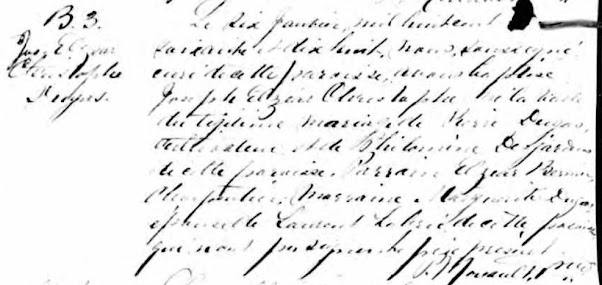 B. 3.
Jos. Elzéar
Christophe
Dugas.
Le six Janvier, mil huit cent
soixante et dix huit, nous, soussigné
curé de cette paroisse, avons baptisé
Joseph Elzéar Christophe, né la veille
du légitime mariage de Pierre Dugas,
cultivateur et de Philomène Desjardins
de cette paroisse. Parrain Elzéar
Charpentier, Marraine Marguerite Dugas
épouse de Laurent de cette paroisse
qui n'ont pas signer le père présent